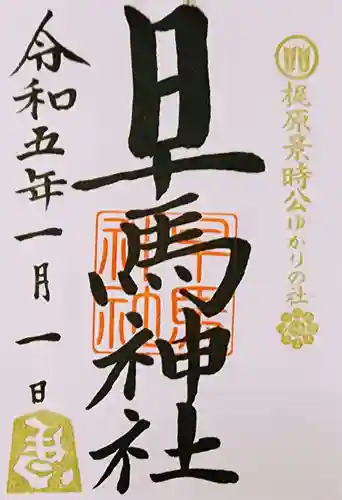 梶原景時公ゆかりの社
早馬神社
早馬神社
令和五年一月一日